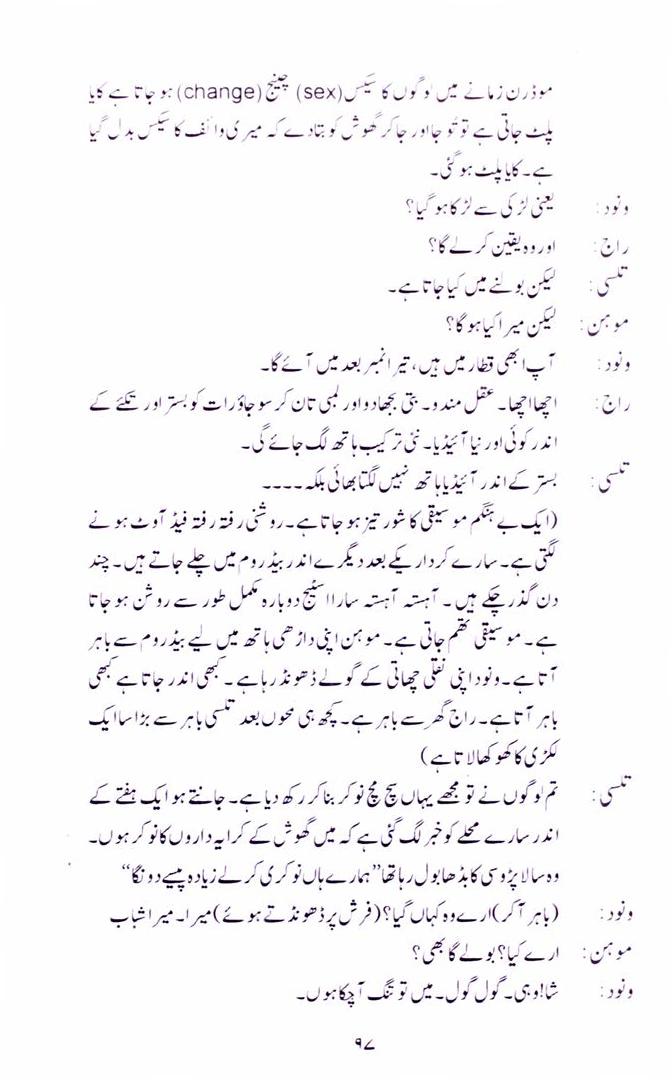 موڈرن زمانے میں لوگوں کا سیکس (sex) چینج (change) ہو جاتا ہے کایا
پلٹ جاتی ہے تو تُو جا اور جا کر گھوش کو بتا دے کہ میری وائف کا سیکس بدل گیا
ہے۔ کایا پلٹ ہو گئی۔
ونود: یعنی لڑکی سے لڑکا ہو گیا؟
راج: اور وہ یقین کر لے گا؟
تلسی: لیکن بولنے میں کیا جاتا ہے۔
موہن: لیکن میرا کیا ہو گا؟
ونود: آپ ابھی قطار میں ہیں، تیرا نمبر بعد میں آئے گا۔
راج: اچھا اچھا۔ عقل مندو۔ بتی بجھا دو اور لمبی تان کر سو جاؤ رات کو بستر اور تکئے کے
اندر کوئی اور نیا آئیڈیا۔ نئی ترکیب ہاتھ لگ جائے گی۔
تلسی: بستر کے اندر آئیڈیا ہاتھ نہیں لگتا بھائی بلکہ۔۔۔۔
(ایک بے ہنگم موسیقی کا شور تیز ہو جاتا ہے۔ روشنی رفتہ رفتہ فیڈ آوٹ ہونے
لگتی ہے۔ سارے کردار یکے بعد دیگرے اندر بیڈ روم میں چلے جاتے ہیں۔ چند
دن گذر چکے ہیں۔ آہستہ آہستہ سارا اسٹیج دوبارہ مکمل طور سے روشن ہو جاتا
ہے۔ موسیقی تھم جاتی ہے۔ موہن اپنی داڑھی ہاتھ میں لیے بیڈ روم سے باہر
آتا ہے۔ ونود اپنی نقلی چھاتی کے گولے ڈھونڈ رہا ہے۔ کبھی اندر جاتا ہے کبھی
باہر آتا ہے۔ راج گھر سے باہر ہے۔ کچھ ہی محوں بعد تلسی باہر سے بڑا سا ایک
لکڑی کا کھوکھا لاتا ہے)
تلسی: تم لوگوں نے تو مجھے یہاں سچ مچ نوکر بنا کر رکھ دیا ہے۔ جانتے ہو ایک ہفتے کے
اندر سارے محلے کو خبر لگ گئی ہے کہ میں گھوش کے کرایہ داروں کا نوکر ہوں۔
وہ سالا پڑوسی کا بڈھا بول رہا تھا ”ہمارے ہاں نوکری کر لے زیادہ پیسے دونگا“
ونود: (باہر آکر) ارے وہ کہاں گیا؟ (فرش پر ڈھونڈتے ہوئے) میرا۔ میرا شباب
موہن: ارے کیا؟ بولے گا بھی؟
ونود: شا! وہی۔ گول گول۔ میں تو تنگ آ چکا ہوں۔
۹۷